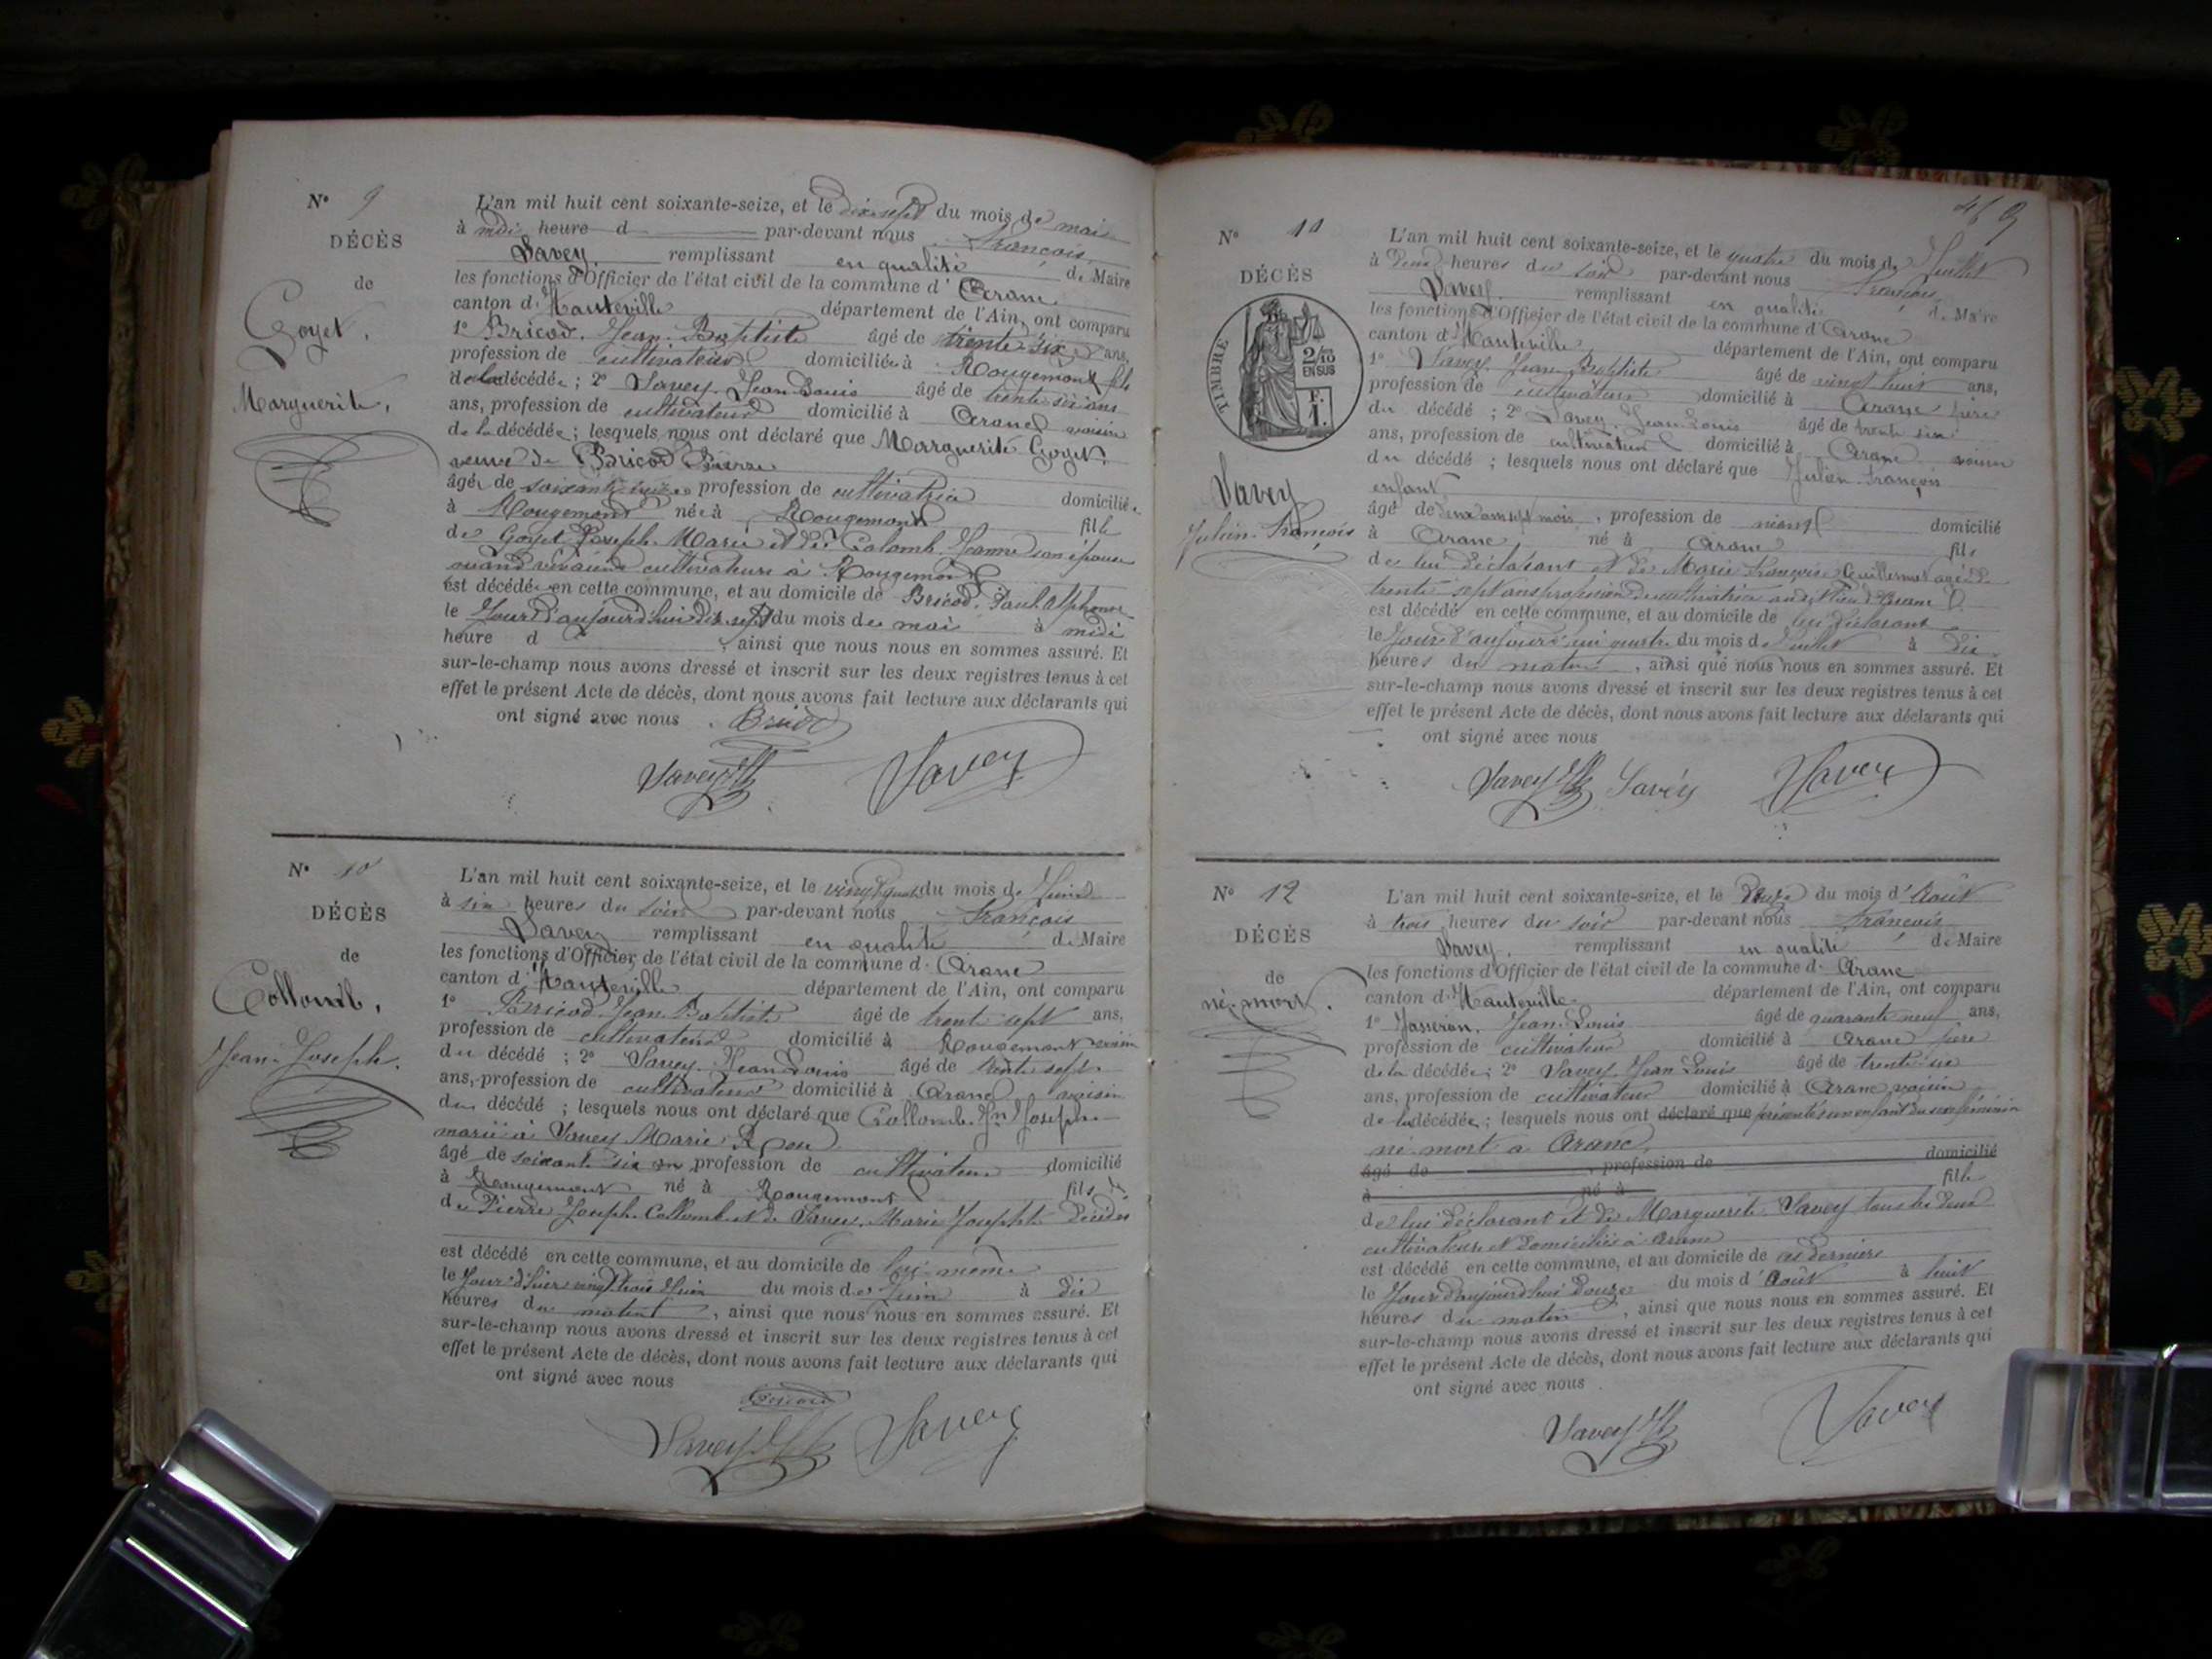 N° 9
DÉCÈS
de
Goyet,
Marguerite,
L'an mil huit cent soixante-seize, et le dix-sept du mois de mai
à midi heure d par-devant nous François
Savey remplissant en qualité de Maire
les fonctions d'Officier de l'état civil de la commune d'Aranc
canton d'Hauteville département de l'Ain, ont comparu
1° Bricod, Jean-Baptiste âgé de trente-six ans,
profession de cultivateur domicilié à Rougemont fils
de la décédée ; 2° Savey, Jean-Louis âgé de trente-six ans
ans, profession de cultivateur domicilié à Aranc voisin
de la décédée ; lesquels nous ont déclaré que Marguerite Goyet,
veuve de Bricod Pierre
âgée de soixante profession de cultivatrice domiciliée
à Rougemont née à Rougemont fille
de Goyet Joseph-Marie et de Colomb Jeanne son épouse
quand vivaient cultivateurs à Rougemont
est décédée en cette commune, et au domicile de Bricod, Paul Alphonse
le Jour d'aujourd'hui dix-sept du mois de mai à midi
heure d , ainsi que nous nous en sommes assuré. Et
sur-le-champ nous avons dressé et inscrit sur les deux registres tenus à cet
effet le présent Acte de décès, dont nous avons fait lecture aux déclarants qui
ont signé avec nous
Savey Savey
N° 10
DÉCÈS
de
Collomb,
Jean-Joseph.
L'an mil huit cent soixante-seize, et le vingt-quatre du mois de Juin
à six heures du soir par-devant nous François
Savey remplissant en qualité de Maire
les fonctions d'Officier de l'état civil de la commune d'Aranc
canton d'Hauteville département de l'Ain, ont comparu
1° Bricod, Jean-Baptiste âgé de trente-sept ans,
profession de cultivateur domicilié à Rougemont voisin
du décédé ; 2° Savey, Jean-Louis âgé de trente-sept
ans, profession de cultivateur domicilié à Aranc voisin
du décédé ; lesquels nous ont déclaré que Collomb Jn Joseph
marié à Savey Marie
âgé de soixante-six an profession de cultivateur domicilié
à Rougemont né à Rougemont fils
de Pierre Joseph Collomb et de Savey, Marie Josephte décédés
est décédé en cette commune, et au domicile de lui-même
le Jour d'hier vingt-trois Juin du mois de Juin à dix
heures du matin , ainsi que nous nous en sommes assuré. Et
sur-le-champ nous avons dressé et inscrit sur les deux registres tenus à cet
effet le présent Acte de décès, dont nous avons fait lecture aux déclarants qui
ont signé avec nous
Bricod
Savey Savey
469
N° 11
DÉCÈS
TIMBRE
2/10
EN SUS
F.
1.
Savey
Julien-François
L'an mil huit cent soixante-seize, et le quatre du mois de Juillet
à deux heures du soir par-devant nous François
Savey remplissant en qualité de Maire
les fonctions d'Officier de l'état civil de la commune d'Aranc
canton d'Hauteville département de l'Ain, ont comparu
1° Savey, Jean-Baptiste âgé de vingt-huit ans,
profession de cultivateur domicilié à Aranc père
du décédé ; 2° Savey, Jean-Louis âgé de trente-six
ans, profession de cultivateur domicilié à Aranc voisin
du décédé ; lesquels nous ont déclaré que Julien-François
enfant
âgé de deux ans sept mois , profession de domicilié
à Aranc né à Aranc fils
de lui déclarant et de Marie Françoise Guillermet âgée de
trente-sept ans profession de cultivatrice Aranc
est décédé en cette commune, et au domicile de lui déclarant
le Jour d'aujourd'hui quatre du mois de Juillet à dix
heures du matin , ainsi que nous nous en sommes assuré. Et
sur-le-champ nous avons dressé et inscrit sur les deux registres tenus à cet
effet le présent Acte de décès, dont nous avons fait lecture aux déclarants qui
ont signé avec nous
Savey Savey Savey
N° 12
DÉCÈS
de
né-mort.
L'an mil huit cent soixante-seize, et le Douze du mois d'Août
à trois heures du soir par-devant nous François
Savey remplissant en qualité de Maire
les fonctions d'Officier de l'état civil de la commune d'Aranc
canton d'Hauteville département de l'Ain, ont comparu
1° Jasseron, Jean-Louis âgé de quarante-neuf ans,
profession de cultivateur domicilié à Aranc père
de la décédée ; 2° Savey Jean Louis âgé de trente-six
ans, profession de cultivateur domicilié à Aranc voisin
de la décédée ; lesquels nous ont déclaré que présenté un enfant du sexe féminin
né-mort à Aranc,
âgé de , profession de domicilié
à né à fille
de lui déclarant et de Marguerite Savey tous les deux
cultivateurs et domiciliés à Aranc
est décédé en cette commune, et au domicile de ces derniers
le Jour d'aujourd'hui douze du mois d'Août à huit
heures du matin , ainsi que nous nous en sommes assuré. Et
sur-le-champ nous avons dressé et inscrit sur les deux registres tenus à cet
effet le présent Acte de décès, dont nous avons fait lecture aux déclarants qui
ont signé avec nous
Savey Savey